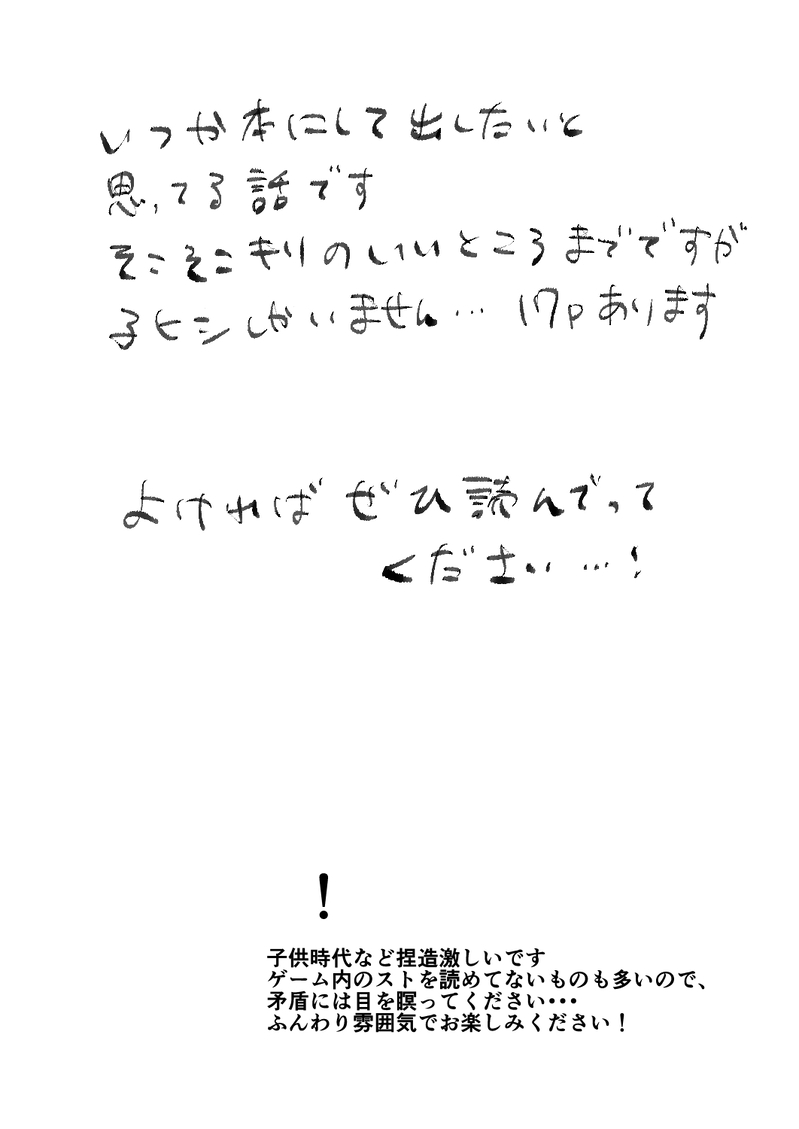 いつか本にして出したいと
思ってる話です
そこそこキリのいいところまでですが
子ヒシしかいません… 17pあります
よければぜひ読んでって
ください…!
!
子供時代など捏造激しいです
ゲーム内のストを読めてないものも多いので、
矛盾には目を瞑ってください・・・
ふんわり雰囲気でお楽しみください!